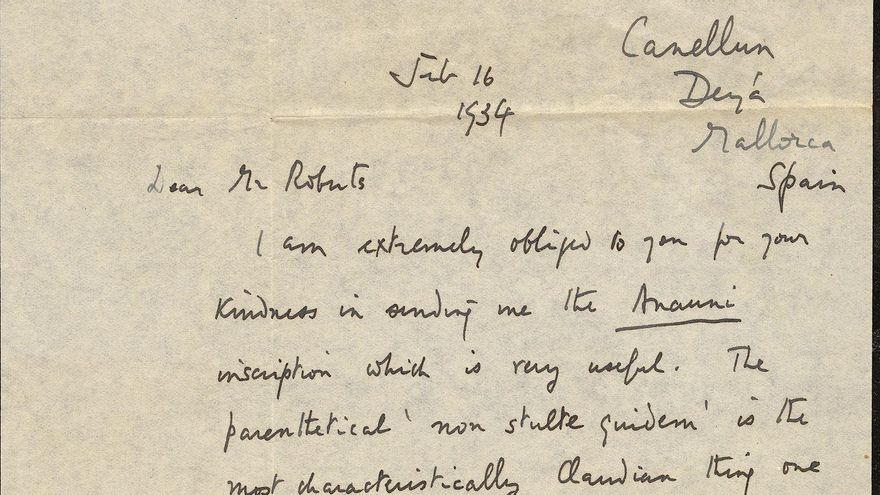 Canellun
Deyá
Mallorca
Spain
Feb 16
1934
Dear Mr Roberts
I am extremely obliged to you for your
kindness in sending me the Anauni
inscription which is very useful. The
parenthetical 'non stulte quidem' is the
most characteristically Claudian thing one